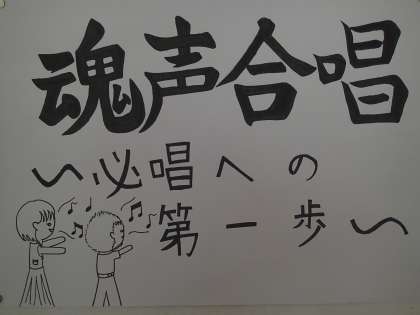 魂声合唱
〜必唱への
第一歩〜